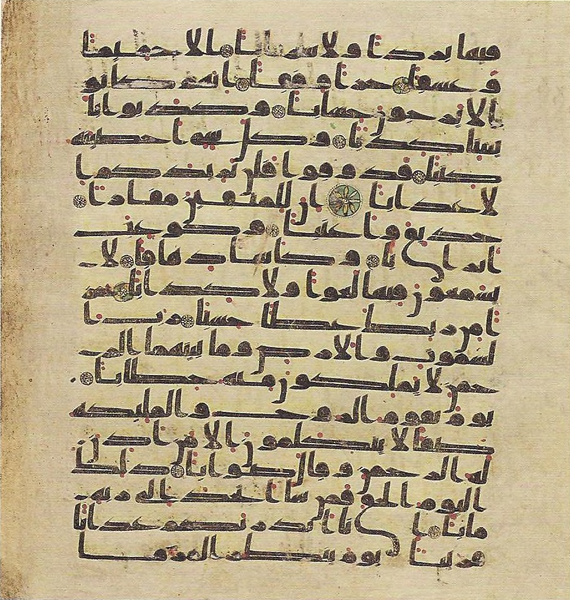 فيها بردا ولا شرابا الا حميما
وغساقا جزا وفاقا انهم كانو
ا لا يرجون حسابا وكذبوا با
يتنا كذابا وكل شى احصينه
كتبا فذوقوا فلن نزيدكم ا
لا عذابا ان للمتقين مفازا
حدايق واعنبا وكواعب
اترابا وكاسا دهاقا لا
يسمعون فيها لغوا ولا كذابا جز
ا من ربك عطا حسابا رب ا
لسموت والارض وما بينهما الر
حمن لا يملكون منه خطابا
يوم يقوم الروح والمليكه
صفا لا يتكلمون الا من اذن
له الرحمن وقال صوابا ذلك
اليوم الحق فمن شا اتخذ الى ربه
مابا انا انذرنكم عذابا
قريبا يوم ينظر المر ما